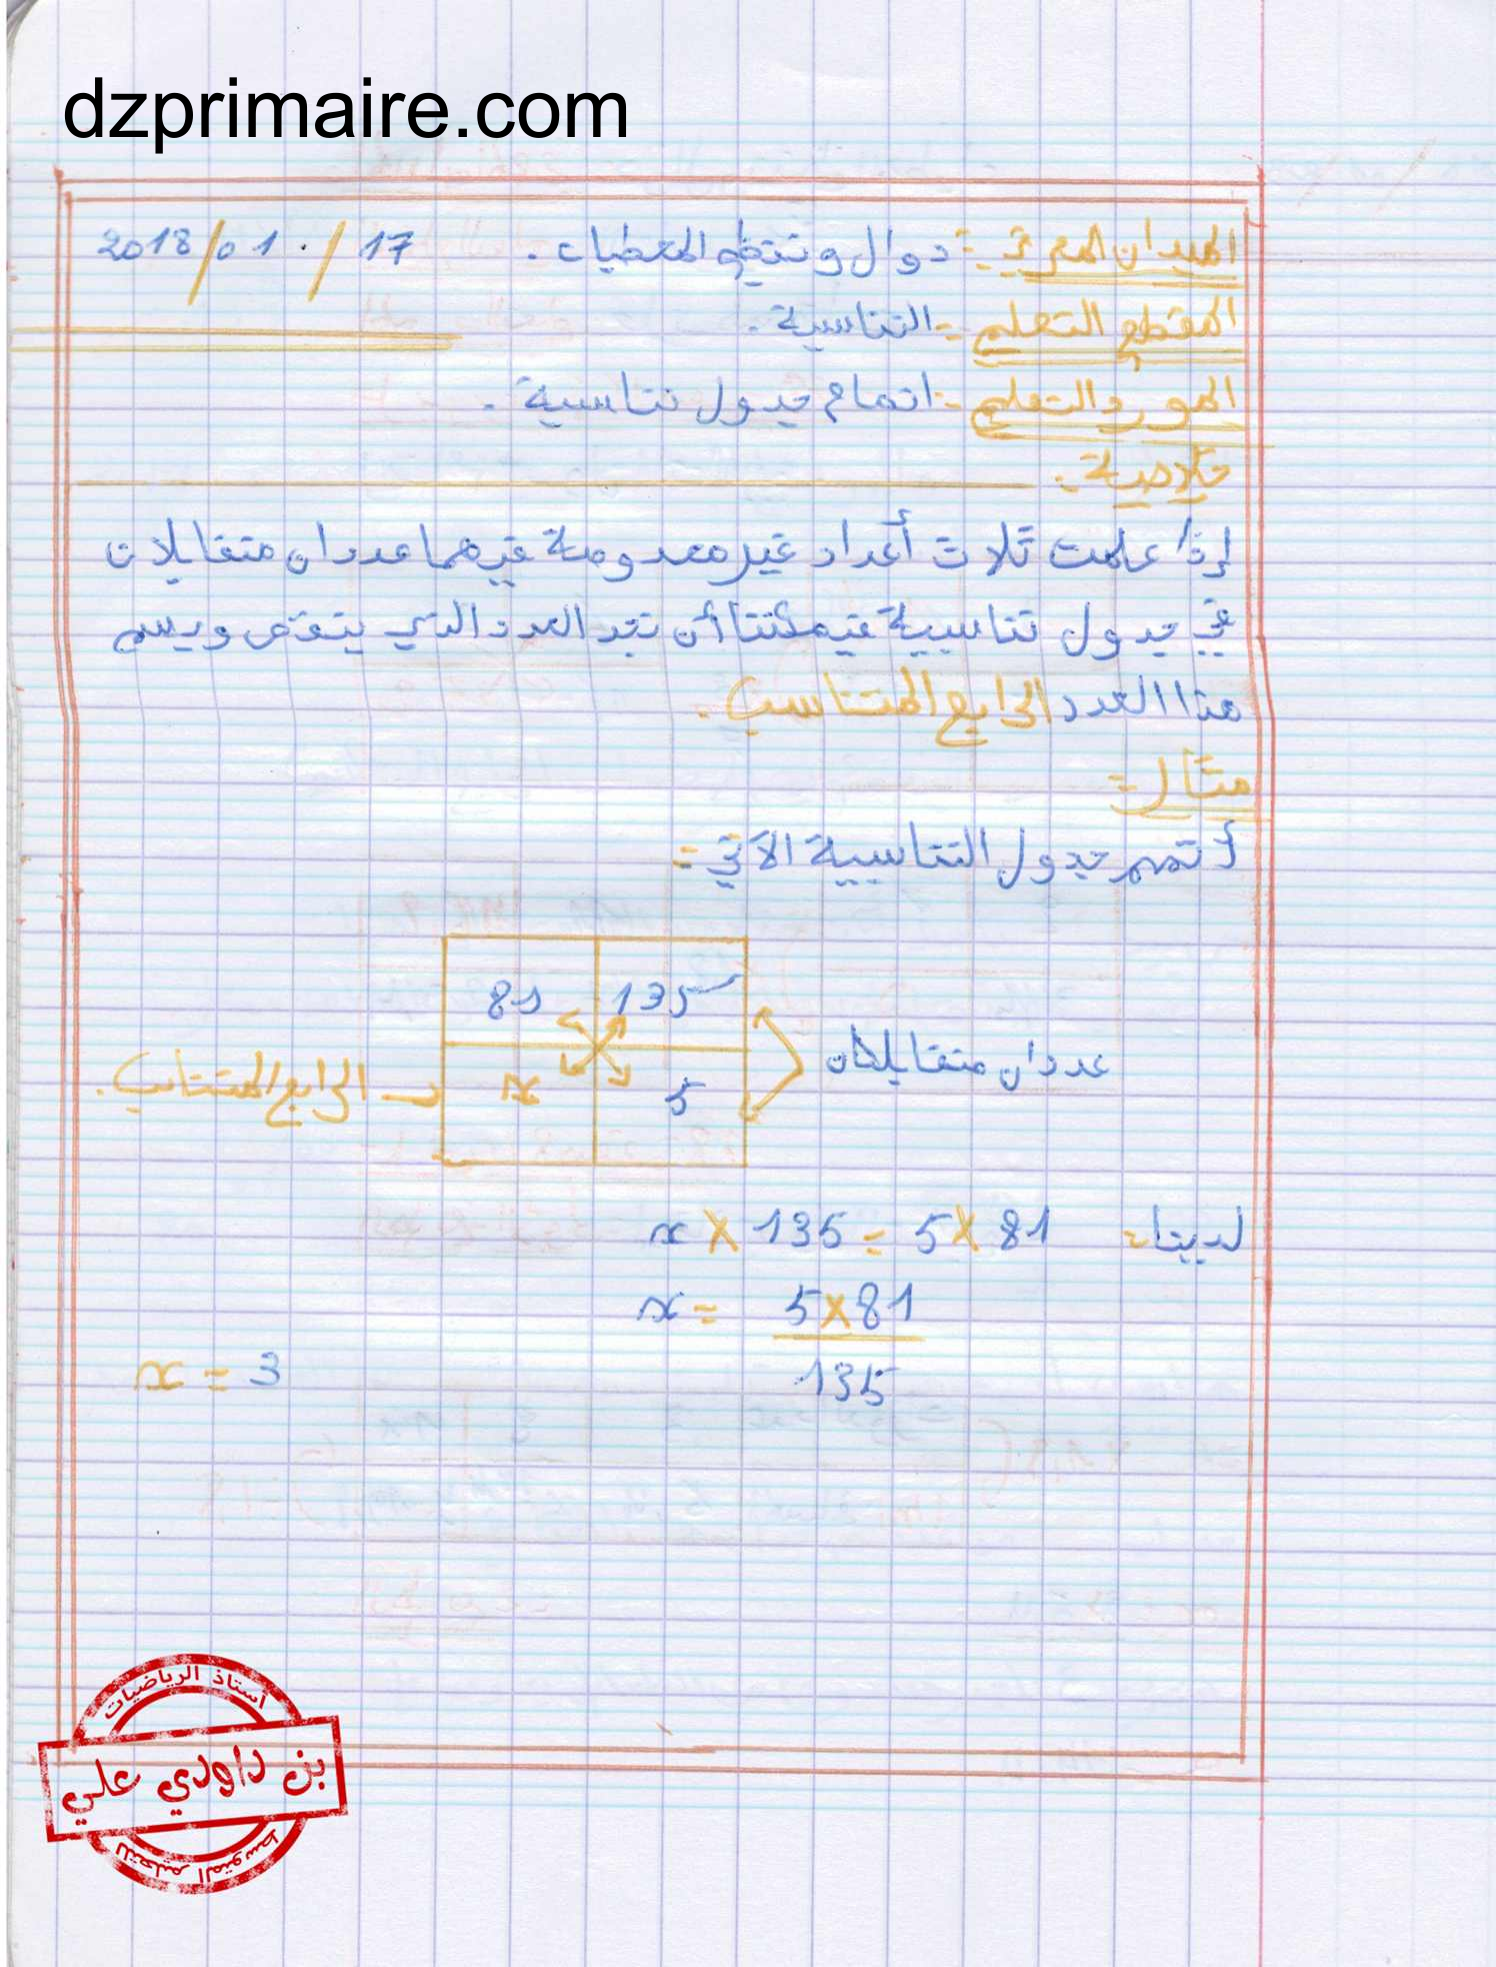 dzprimaire.com
الميدان المعرفي :- دوال وتنظيم المعطيات . 17 / 01 / 2018
المقطع التعلمي :- التناسبية .
المورد التعلمي :- اتمام جدول تناسبية .
خلاصة :
إذا علمت ثلاث أعداد غير معدومة فيهما عددان متقابلان
في جدول تناسبية فيمكننا أن نجد العدد الذي ينقص ويسم
هذا العدد الرابع المتناسب .
مثال :-
أتمم جدول التناسبية الآتي :-
81 135
عددان متقابلان
x 5
الرابع المتناسب .
لدينا :- x × 135 = 5 × 81
x = 5 × 81
135
x = 3
أستاذ الرياضيات
بن داودي علي
للتعليم المتوسط